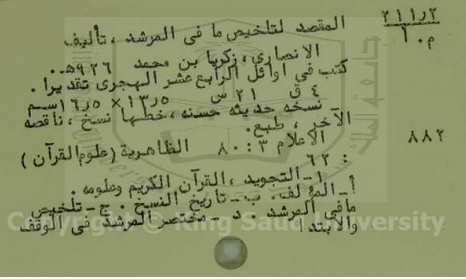 ٢١١ر٢
م.أ
المقصد لتلخيص ما فى المرشد ، تأليف
الانصارى ، زكريا بن محمد ٩٢٦ هـ.
كتب فى اوائل الرابع عشر الهجرى تقديرا .
٤ ق ٢١ س ٥ر١٣ × ٥ر١٦ سم
نسخه حديثه حسنه ، خطها نسخ ، ناقصه
الآخر ، طبع .
٨٨٢
الاعلام ٣ : ٨٠ الظاهرية ( علوم القرآن )
: ٦٢
١ - التجويد ، القرآن الكريم وعلومه .
أ - المؤلف . ب - تاريخ النسخ . ج - تلخيص
ما فى المرشد . د - مختصر المرشد فى الوقف
والابتدا
Copyright © King Saud University